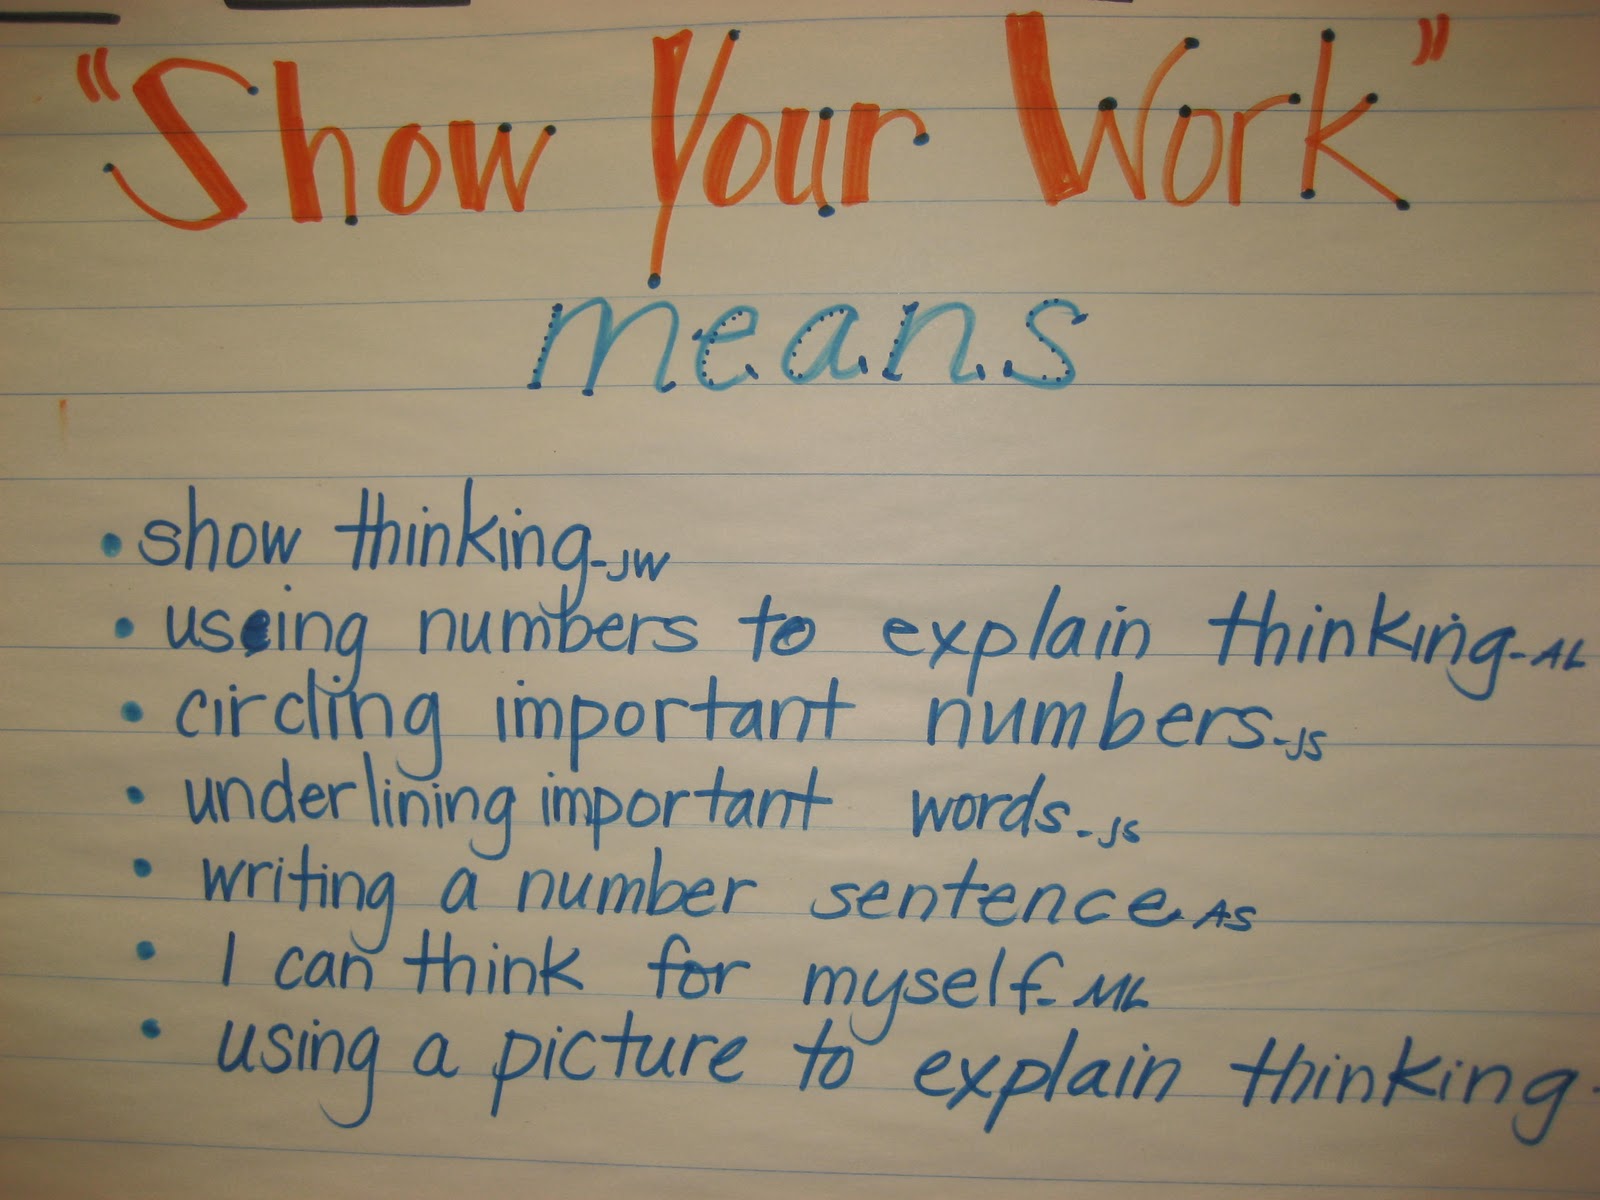 "Show Your Work"
means
• show thinking-JW
• using numbers to explain thinking-AL
• circling important numbers-JS
• underlining important words-JS
• writing a number sentence-AS
• I can think for myself-ML
• using a picture to explain thinking-